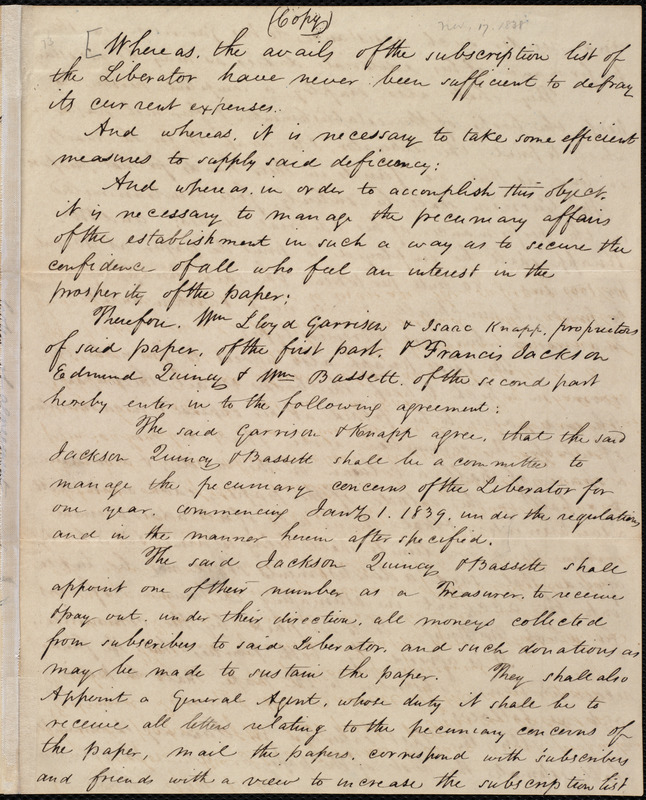 (Copy)
Nov. 17. 1838
[Whereas, the avails of the subscription list of
the Liberator have never been sufficient to defray
its current expenses.
And whereas, it is necessary to take some efficient
measures to supply said deficiency;
And whereas, in order to accomplish this object,
it is necessary to manage the pecuniary affairs
of the establishment in such a way as to secure the
confidence of all who feel an interest in the
prosperity of the paper;
Therefore, Wm Lloyd Garrison & Isaac Knapp, proprietors
of said paper, of the first part, & Francis Jackson
Edmund Quincy & Wm Bassett, of the second part
hereby enter in to the following agreement:
The said Garrison & Knapp agree, that the said
Jackson Quincy & Bassett shall be a committee to
manage the pecuniary concerns of the Liberator for
one year, commencing Jany 1. 1839, under the regulations
and in the manner herein after specified.
The said Jackson Quincy & Bassett shall
appoint one of their number as a Treasurer, to receive
& pay out, under their direction, all moneys collected
from subscribers to said Liberator, and such donations as
may be made to sustain the paper. They shall also
Appoint a General Agent, whose duty it shall be to
receive all letters relating to the pecuniary concerns of
the paper, mail the papers, correspond with subscribers
and friends with a view to increase the subscription list